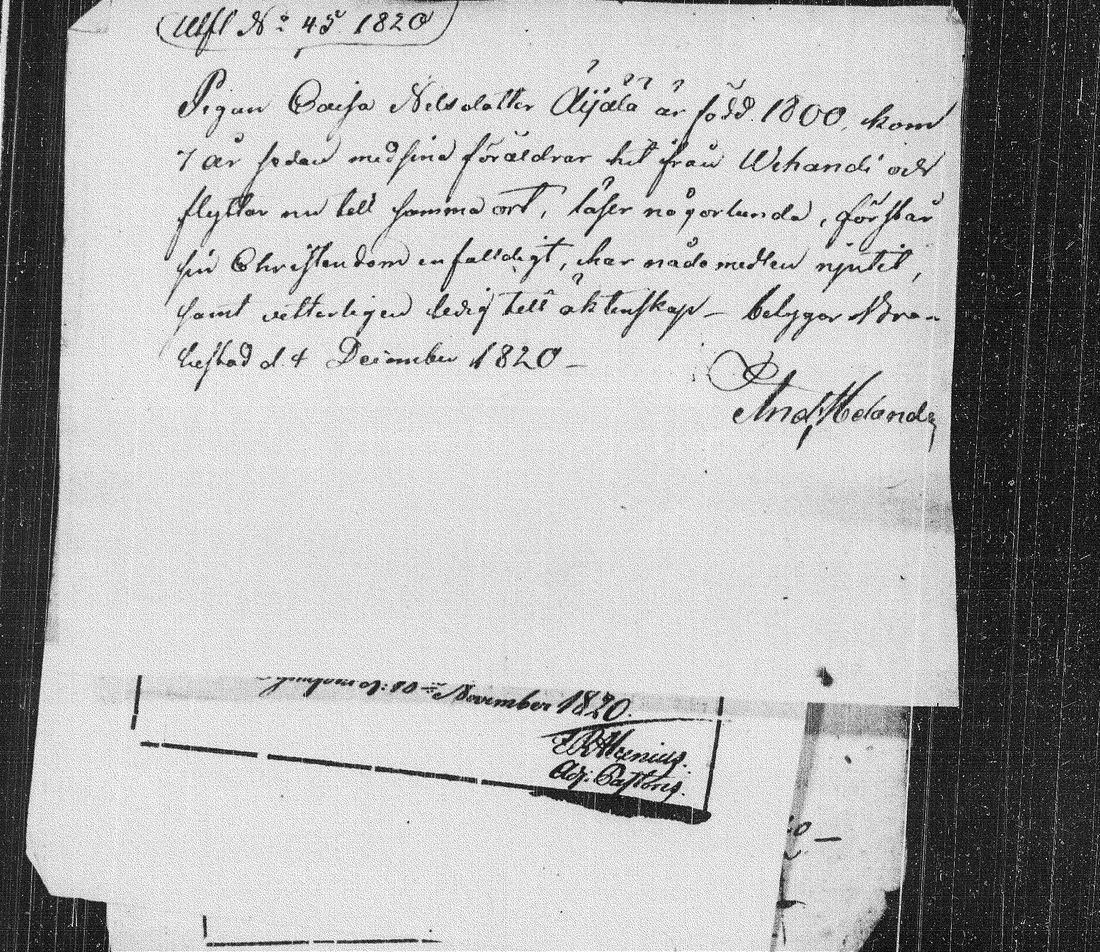 Utfl N:o 45. 1820
Pigan Caisa Nilsdotter Äijälä är född. 1800, kom
7 år sedan med sina föräldrar hit från Wehandi och
flyttar nu till samma ort, läser någorlunda, förstår
sin Christendom enfaldigt, har nådemedlen njutit,
samt vetterligen ledig till äktenskap – betygar Bra-
hestad d. 4 December 1820 –
And: Helander
d: 10 November 1820.
Adj: Pastoris.